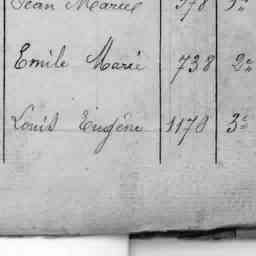 Jean Marie 378 3e
Emile Marie 738 2e
Louis Eugène 1170 3e